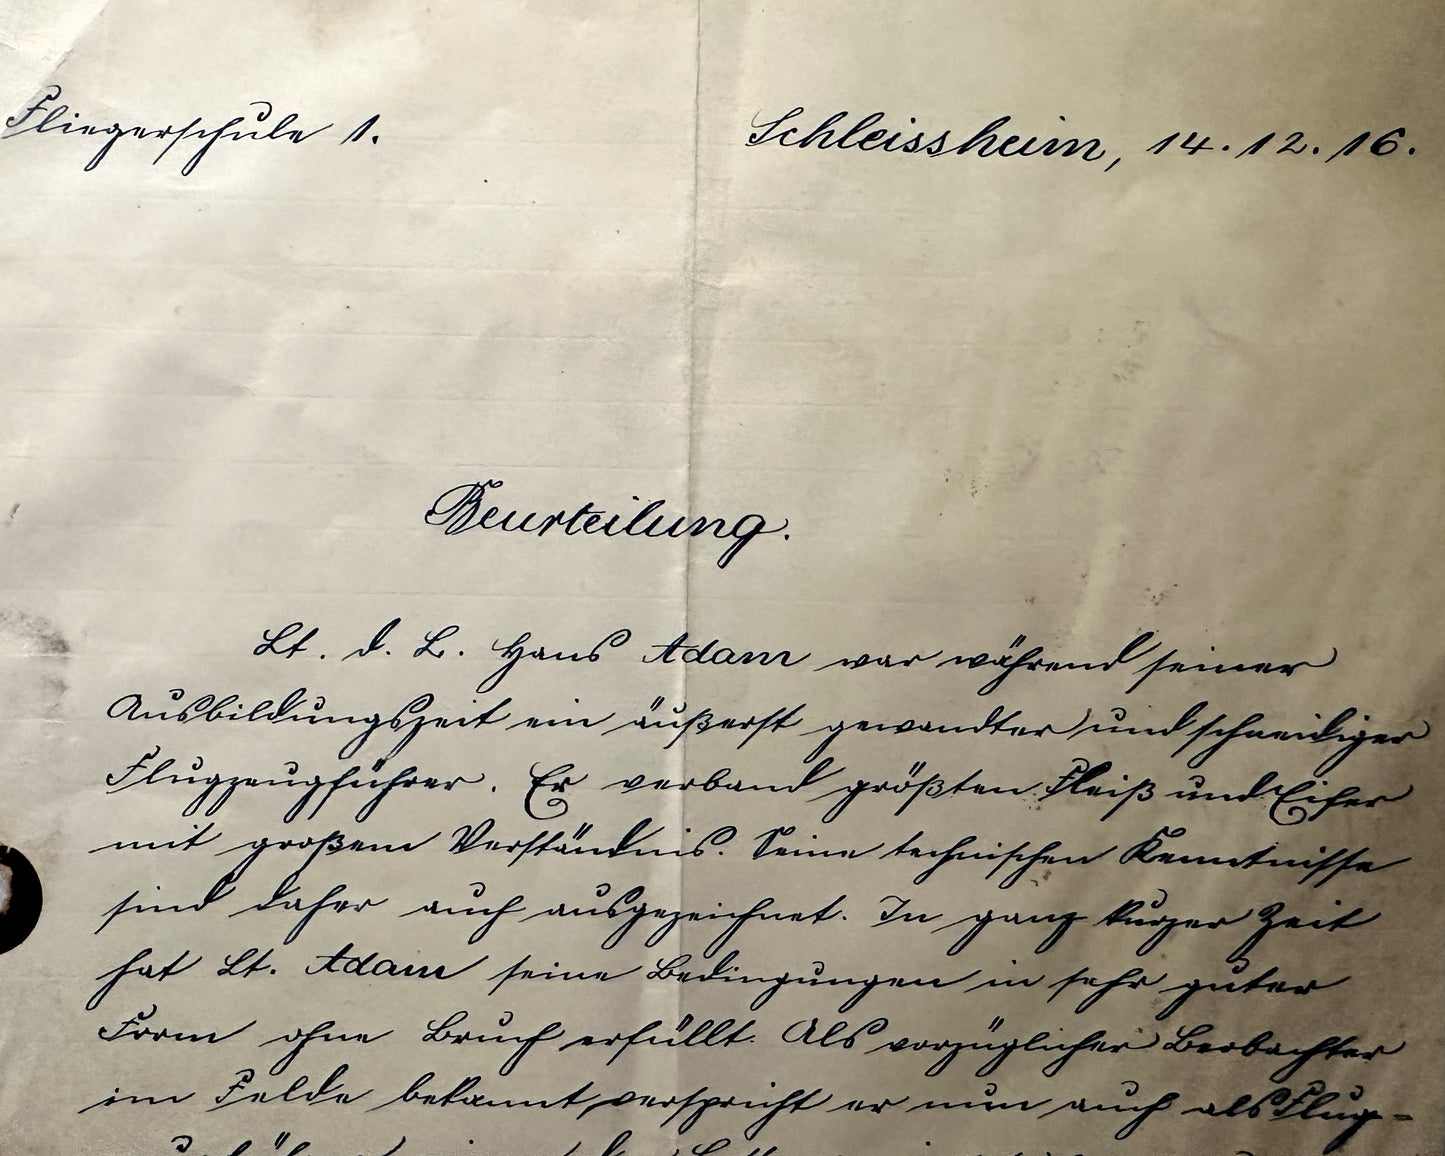 Fliegerschule 1.
Schleissheim, 14.12.16.
Beurteilung.
Lt. d. L. Hans Adam war während seiner
Ausbildungszeit ein äußerst gewandter und schneidiger
Flugzeugführer. Er verband größten Fleiß und Eifer
mit großem Verständnis. Seine technischen Kenntnisse
sind daher auch ausgezeichnet. In ganz kurzer Zeit
hat Lt. Adam seine Bedingungen in sehr guter
Form ohne Bruch erfüllt. Als vorzüglicher Beobachter
im Felde bekannt, verspricht er nun auch als Flug-